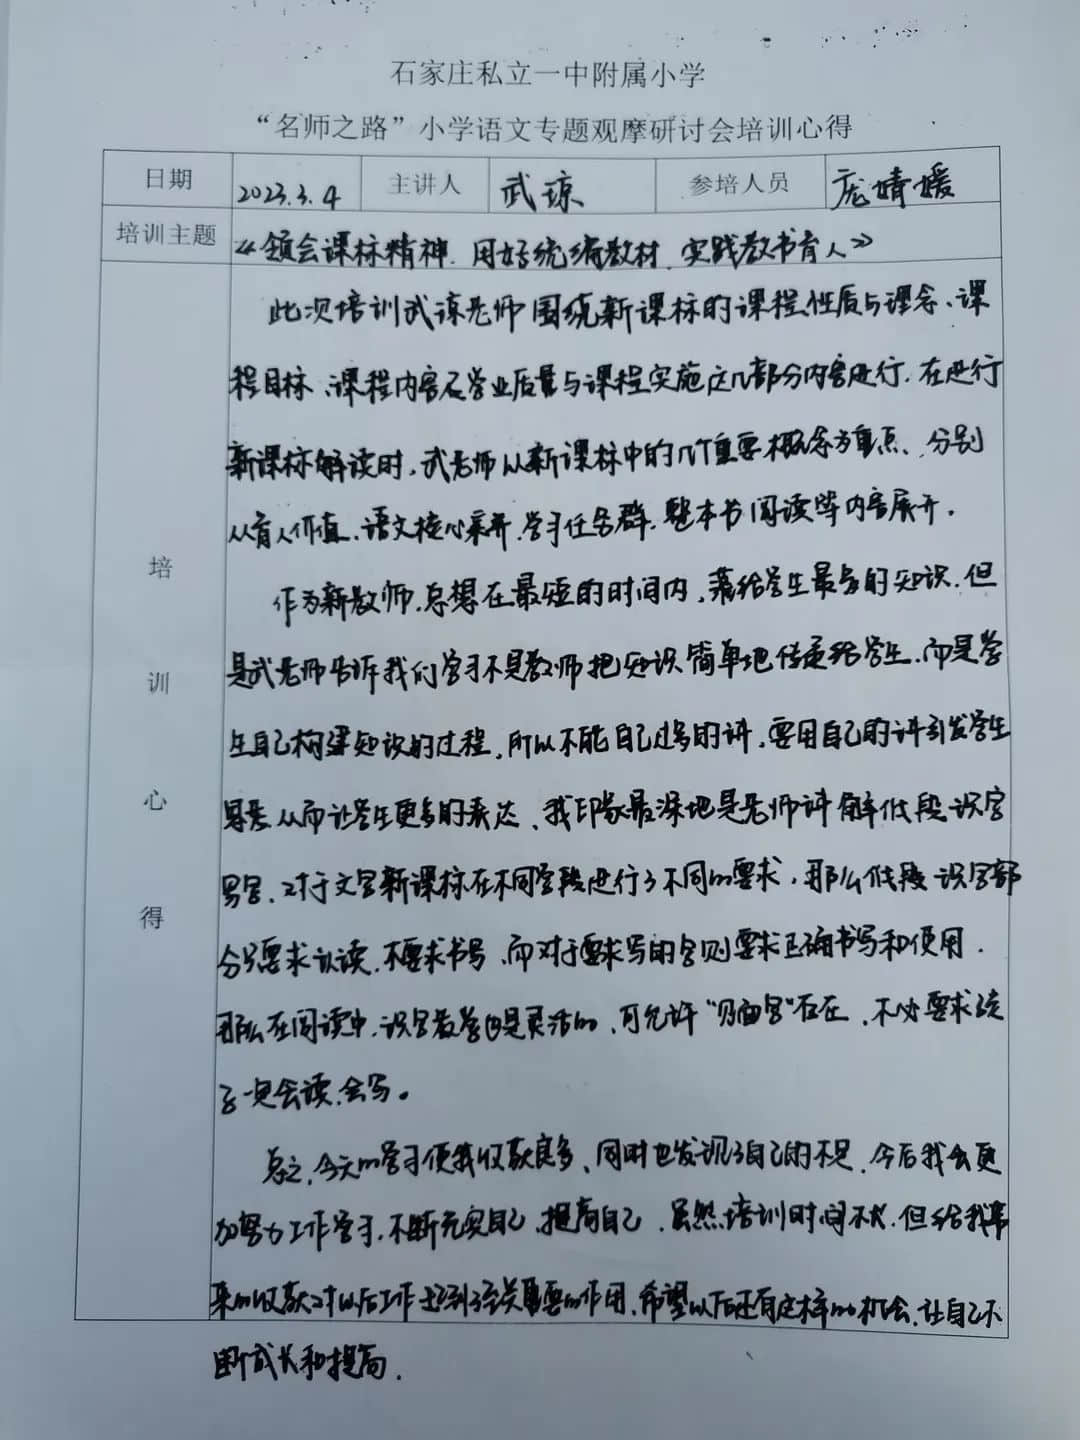 石家庄私立一中附属小学
“名师之路”小学语文专题观摩研讨会培训心得
日期 2023.3.4 主讲人 武琼 参培人员 庞婧媛
培训主题 《领会课标精神.用好统编教材.实践教书育人》
培训心得
此次培训武谅老师围绕新课标的课程性质与理念、课
程目标、课程内容及学业质量与课程实施这几部分内容进行.在进行
新课标解读时,武老师从新课标中的几个重要概念为重点、分别
从育人价值、语文核心素养.学习任务群.整本书阅读等内容展开.
作为新教师.总想在最短的时间内,落给学生最多的知识.但
是武老师告诉我们学习不是教师把知识简单地传递给学生.而是学
生自己构建知识的过程.所以不能自己过多的讲,要用自己的讲引发学生
思考从而让学生更多的表达、我印象最深地是老师讲解低段识字
写字.对于文字新课标在不同学段进行了不同的要求,那么低段识字部
分只要求认读.不要求书写 而对于要求写的字则要求正确书写和使用.
那么在阅读中.识字教学也是灵活的、可允许“陌生字”存在,不必要求读
了一定会读.会写。
总之,今天的学习使我收获良多、同时也发现了自己的不足.今后我会更
加努力工作学习,不断充实自己.提高自己.虽然培训时间不长.但给我带
来的收获对以后工作起到了至关重要的作用.希望以后还有这样的机会.让自己不
断成长和提高.